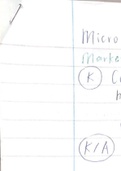 Micro
Marke
K C
K/A